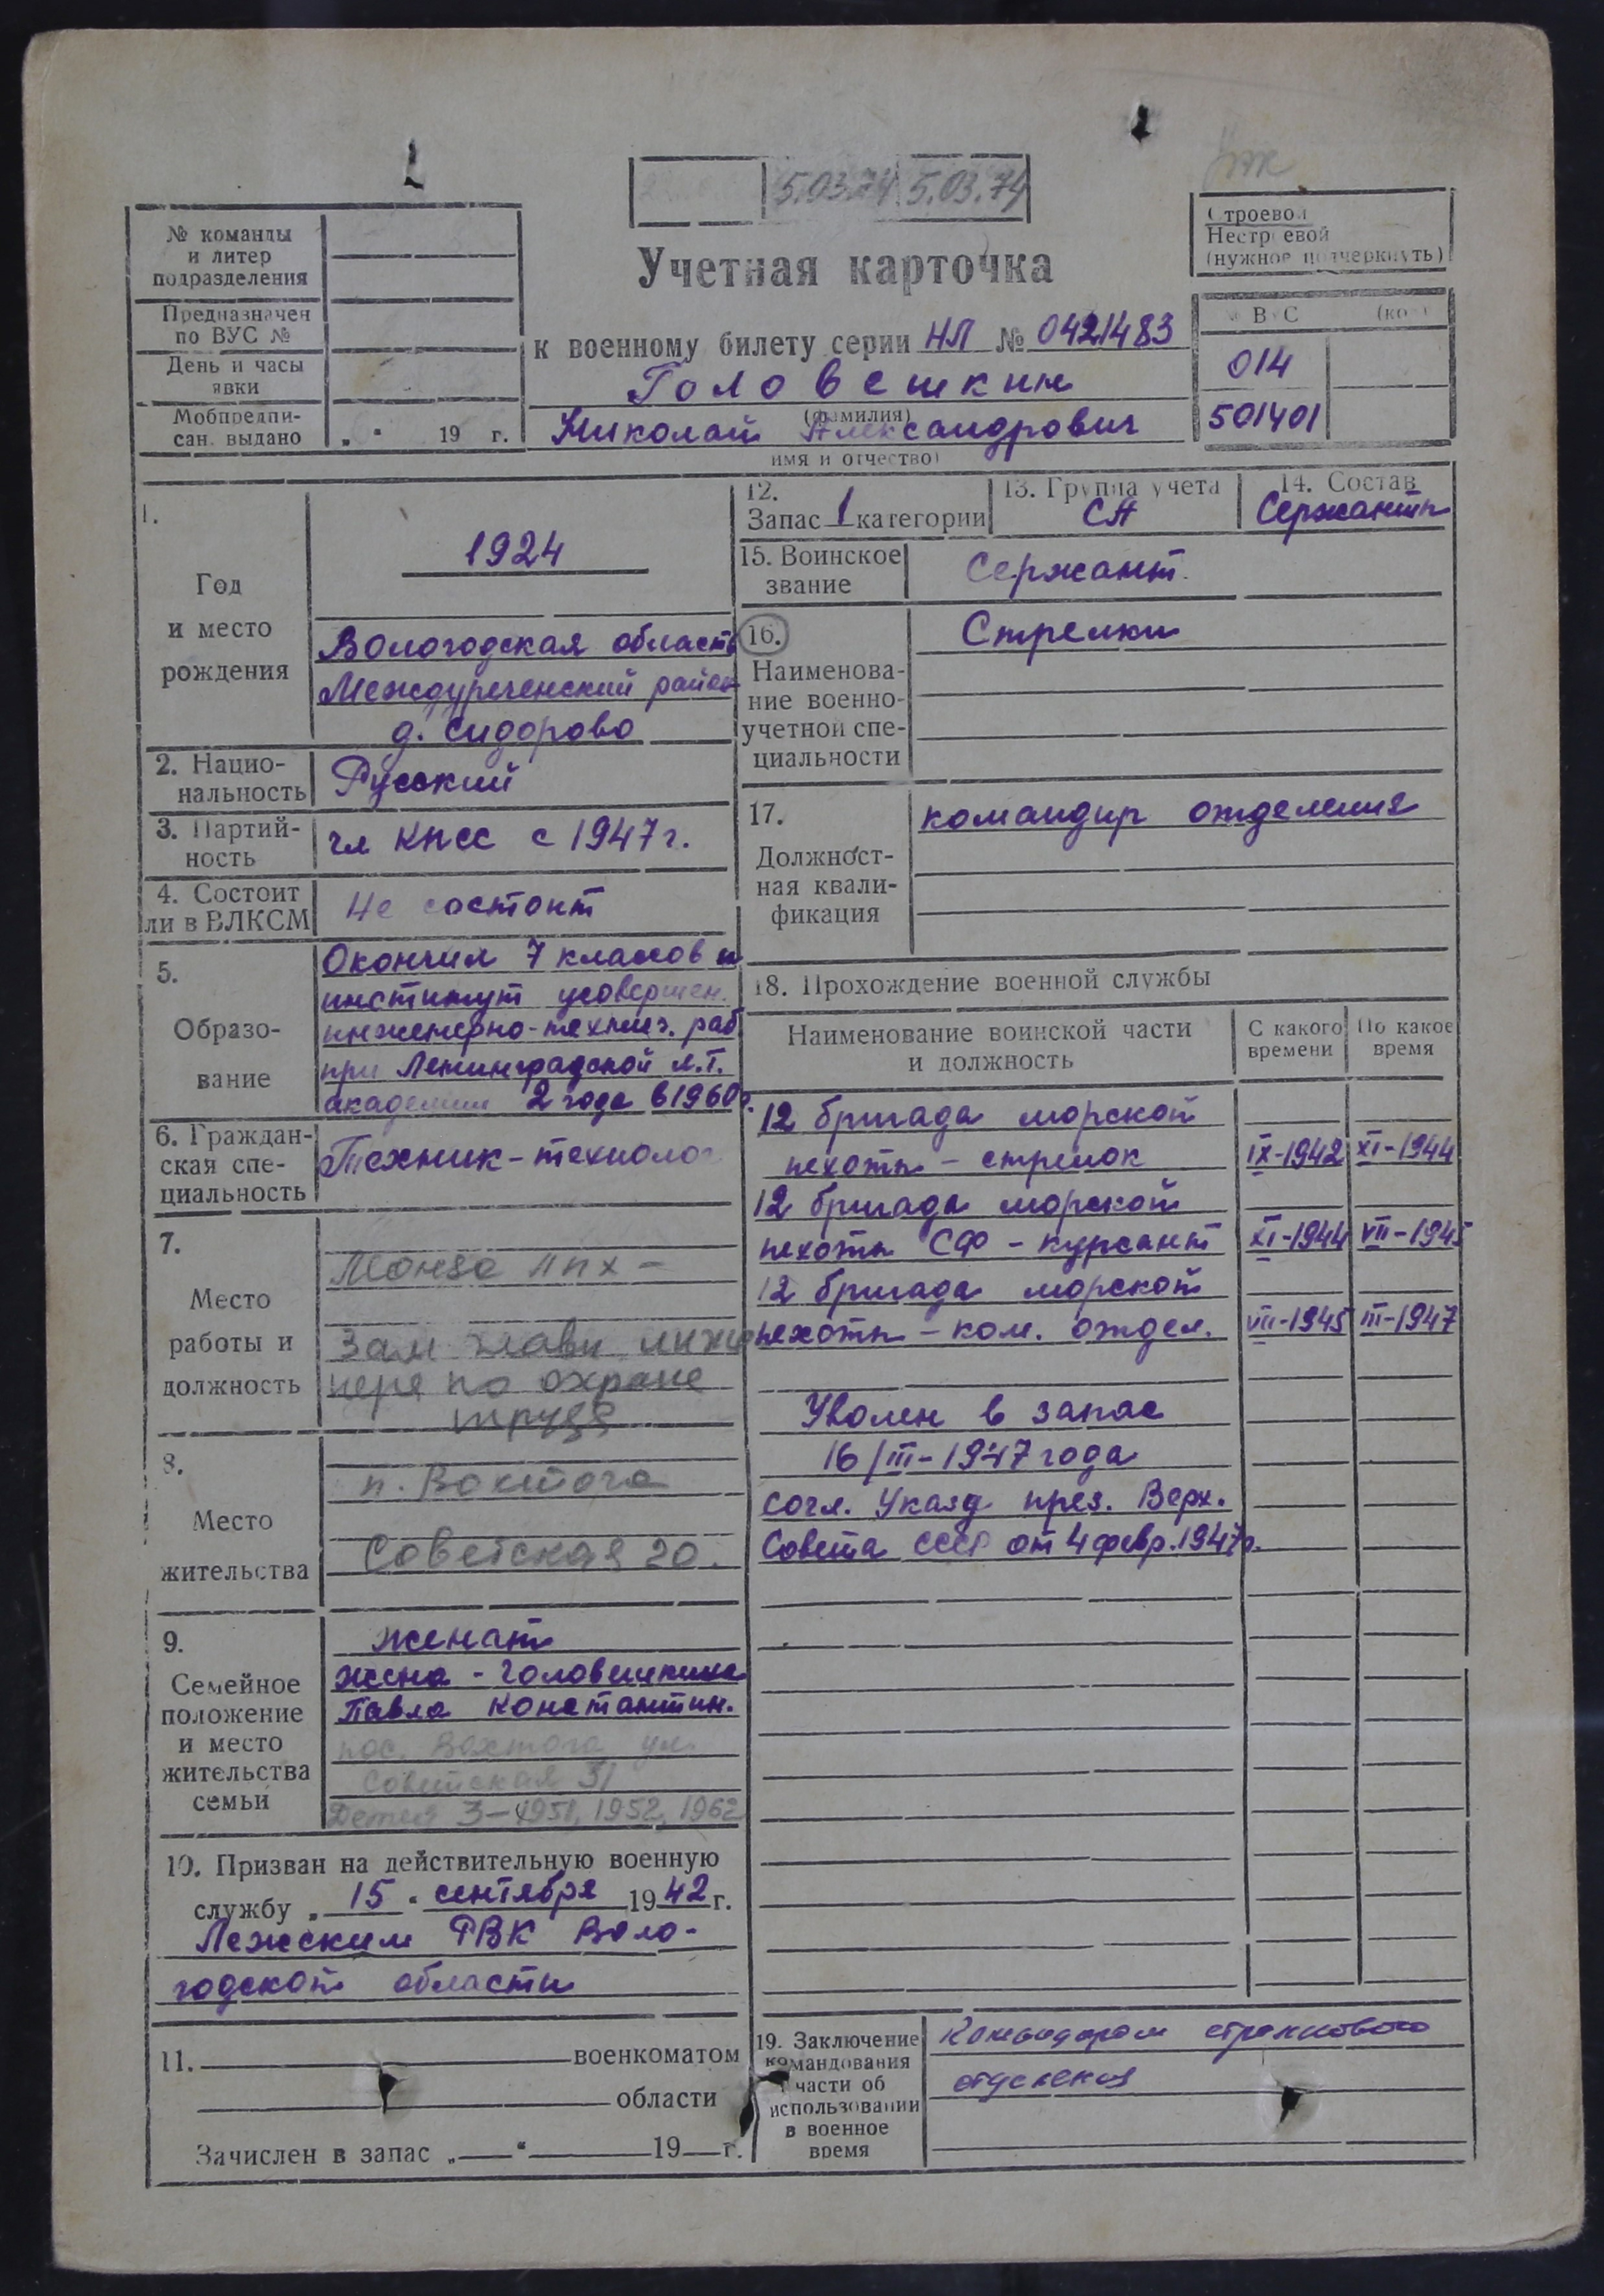 5.03.74 5.03.74
№ команды
и литер
подразделения
Предназначен
по ВУС №
День и часы
явки
Мобпредпи-
сан. выдано „ “ 19 г.
Строевой
Нестроевой
(нужное подчеркнуть)
Учетная карточка
к военному билету серии НЛ № 0421483
Головешкин
(фамилия)
Николай Александрович
имя и отчество)
№ ВУС (код)
014
501401
1.
Год
и место
рождения
1924
Вологодская область
Междуреченский район
д. Сидорово
2. Нацио-
нальность
Русский
3. Партий-
ность
чл КПСС с 1947 г.
4. Состоит
ли в ВЛКСМ
Не состоит
5.
Образо-
вание
Окончил 7 классов и
институт усовершен.
инженерно-технич. раб
при Ленинградской Л.Т.
академии 2 года в 1960г.
6. Граждан-
ская спе-
циальность
Техник-технолог
7.
Место
работы и
должность
Монза ЛПХ -
Зам главн инже
нера по охране
труда
8.
Место
жительства
п. Вохтога
Советская 20.
9.
Семейное
положение
и место
жительства
семьи
женат
жена - Головешкина
Павла Константин.
пос. Вохтога ул.
Советская 31
Детей 3-1951, 1952, 1962
10. Призван на действительную военную
службу „15“ сентября 1942 г.
Лежским РВК Воло-
годской области
11. военкоматом
области
Зачислен в запас „ “ 19 г.
12.
Запас 1 категории
13. Группа учета
СА
14. Состав
Сержанты
15. Воинское
звание
Сержант
16.
Наименова-
ние военно-
учетной спе-
циальности
Стрелки
17.
Должност-
ная квали-
фикация
командир отделения
18. Прохождение военной службы
Наименование воинской части
и должность
С какого
времени
По какое
время
12 бригада морской
пехоты - стрелок IX-1942 XI-1944
12 бригада морской
пехоты СФ - курсант XI-1944 VII-1945
12 бригада морской
пехоты - ком. отдел. VII-1945 III-1947
Уволен в запас
16/III-1947 года
согл. Указа през. Верх.
Совета СССР от 4 февр. 1947г.
19. Заключение
командования
части об
использовании
в военное
время
Командиром стрелкового
отделения